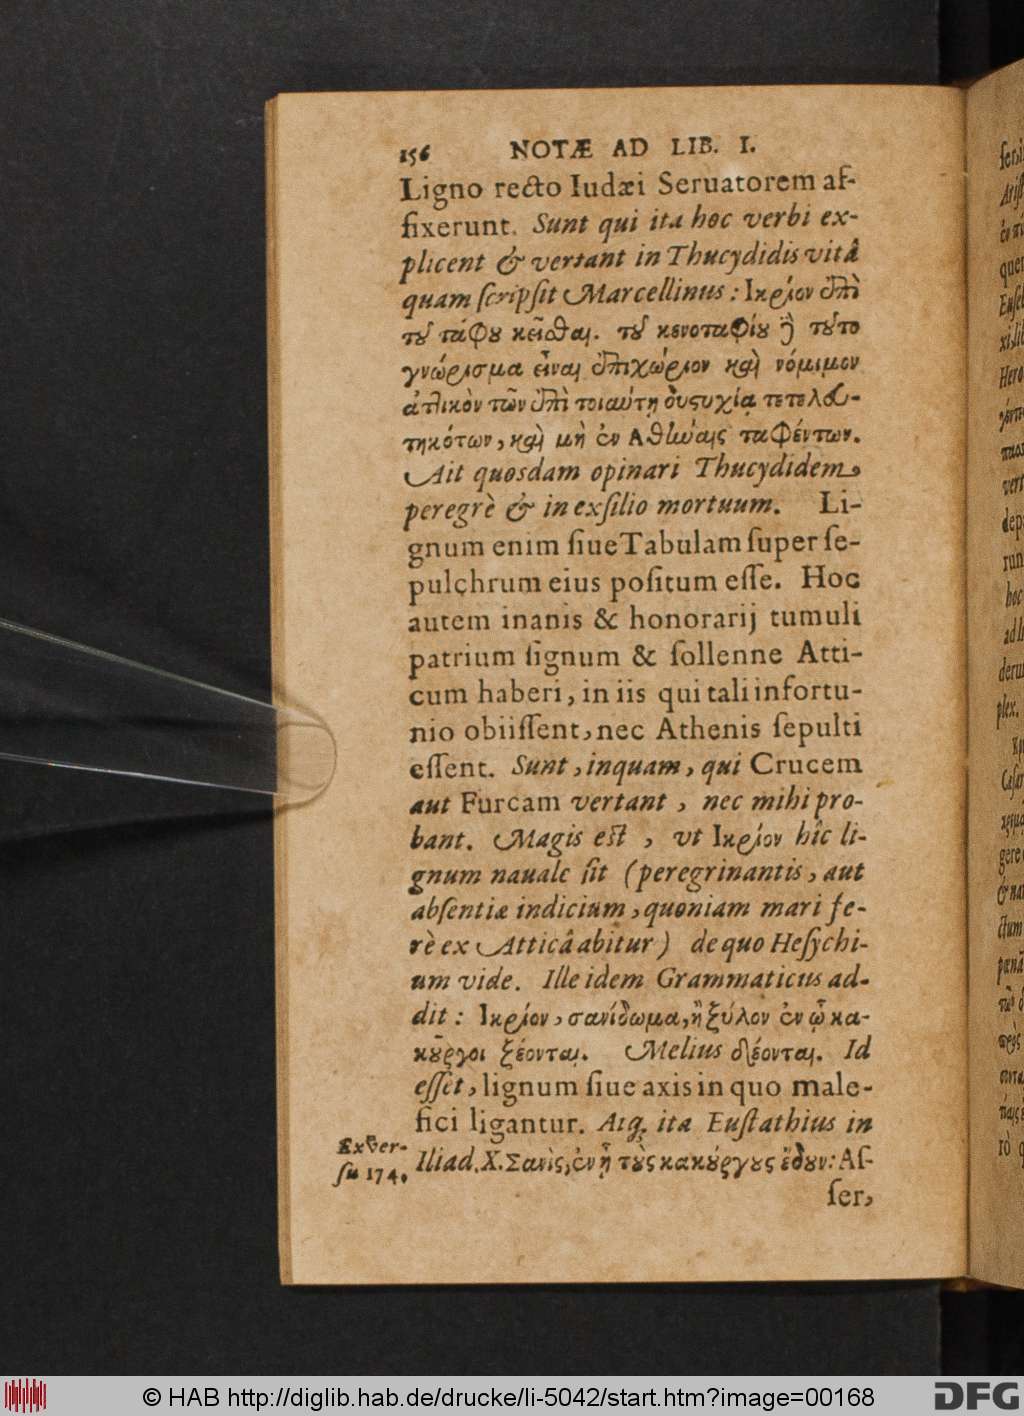 156 NOTÆ AD LIB. I.
Ligno recto Iudæi Seruatorem af-
fixerunt. Sunt qui ita hoc verbi ex-
plicent & vertant in Thucydidis vitâ
quam ſcripſit Marcellinus: Ικρίον ἐπὶ
τȣ͂ τάφȣ κεῖσθαι. τȣ͂ κενοταφίȣ ἢ τȣ͂το
γνώρισμα εἶναι ἐπιχώριον καὶ νόμιμον
ἀτ̓ικὸν τῶν ἐπὶ τοιαύτῃ δυςυχίᾳ τετελευ-
τηκότων, καὶ μὴ ἐν Αθἰώαις ταφέντων.
Ait quosdam opinari Thucydidem,
peregrè & in exſilio mortuum. Li-
gnum enim ſiue Tabulam ſuper ſe-
pulchrum eius poſitum eſſe. Hoc
autem inanis & honorarij tumuli
patrium ſignum & ſollenne Atti-
cum haberi, in iis qui tali infortu-
nio obiiſſent, nec Athenis ſepulti
eſſent. Sunt, inquam, qui Crucem
aut Furcam vertant, nec mihi pro-
bant. Magis eſt, vt Ικρίον hîc li-
gnum nauale ſit (peregrinantis, aut
abſentiæ indicium, quoniam mari fe-
rè ex Atticâ abitur) de quo Heſychi-
um vide. Ille idem Grammaticus ad-
dit: Ικρίον, σανίδωμα, ἢ ξύλον ἐν ᾧ κα-
κȣ͂ργοι ξέονται. Melius δέονται. Id
eſſet, lignum ſiue axis in quo male-
fici ligantur. Atq. ita Euſtathius in
Exver-
ſu 174.
Iliad. X. Σανὶς, ἐν ᾗ τȣ̀ς κακȣ́ργȣς ἔδȣν: Aſ-
ſer,
© HAB http://diglib.hab.de/drucke/li-5042/start.htm?image=00168
DFG